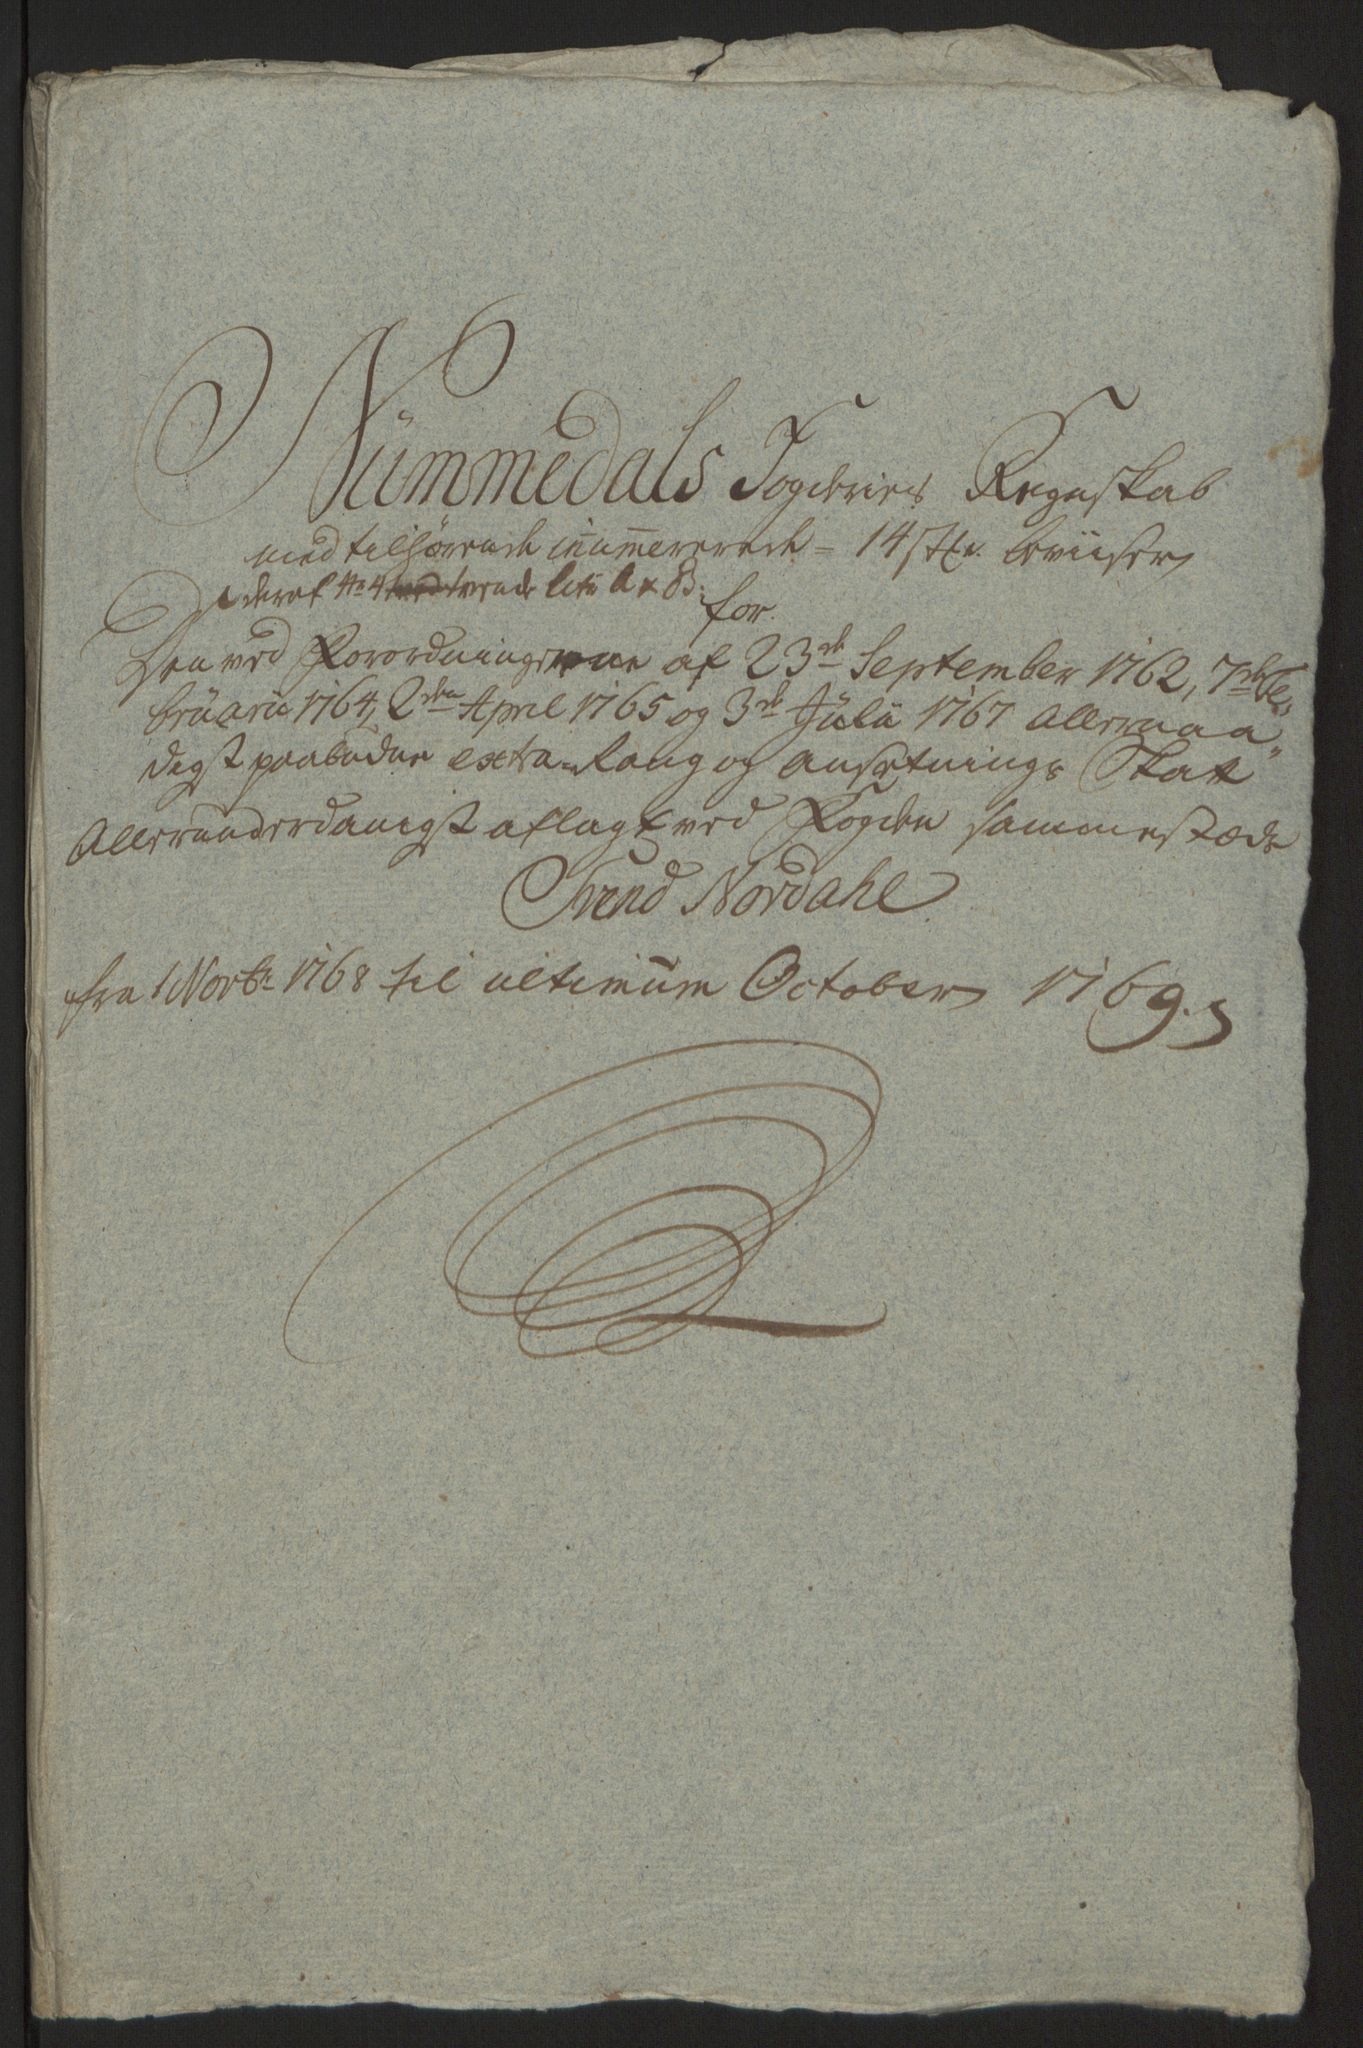 Nümmedals Fogderies Regnskab
med tilhørende inumererede = 14 stk. beviiser
deraf No 4 tvende litr A & B.
for
Den ved Forordningerne af 23de September 1762, 7de Fe„
brüarii 1764, 2den April 1765 og 3de Jülii 1767 Allernaa„
digst paabudne extra- Rang og Ansetnings Skatt
Allerunderdanigst aflagt ved Fogden sammestæds
Svend Nordahl
fra 1 Novbr 1768 til ultimüm October 1769.